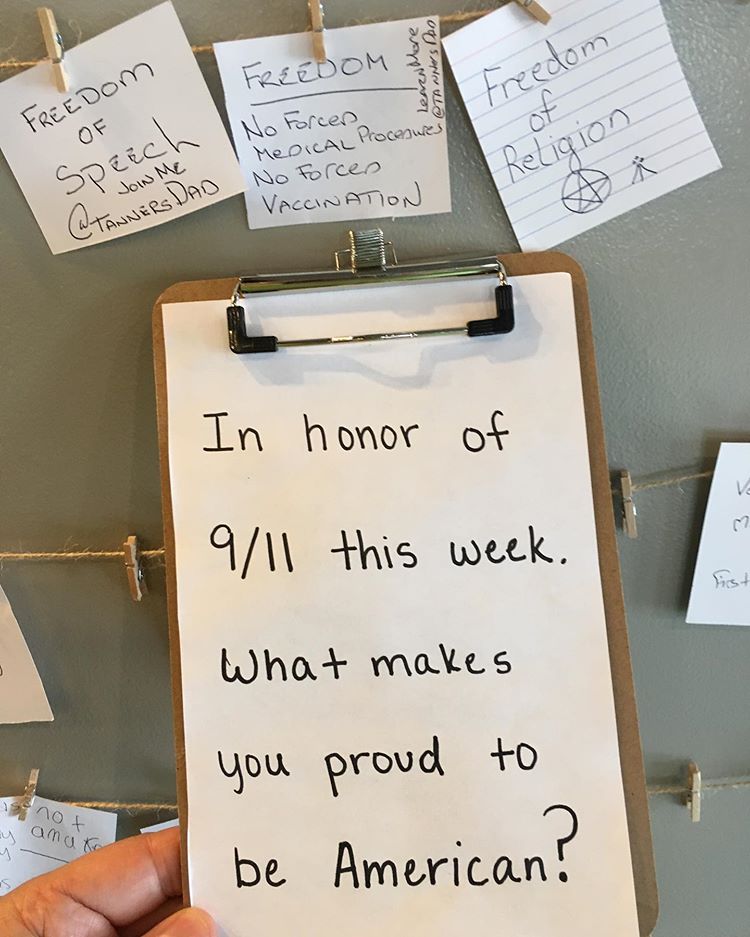 FREEDOM
OF
SPEECH
JOIN ME
@TANNERSDAD
FREEDOM
No Forced
Medical Procedures
No Forced
VACCINATION
Learn More
@TANNERSDAD
Freedom
of
Religion
In honor of
9/11 this week.
What makes
you proud to
be American?
First
not
and